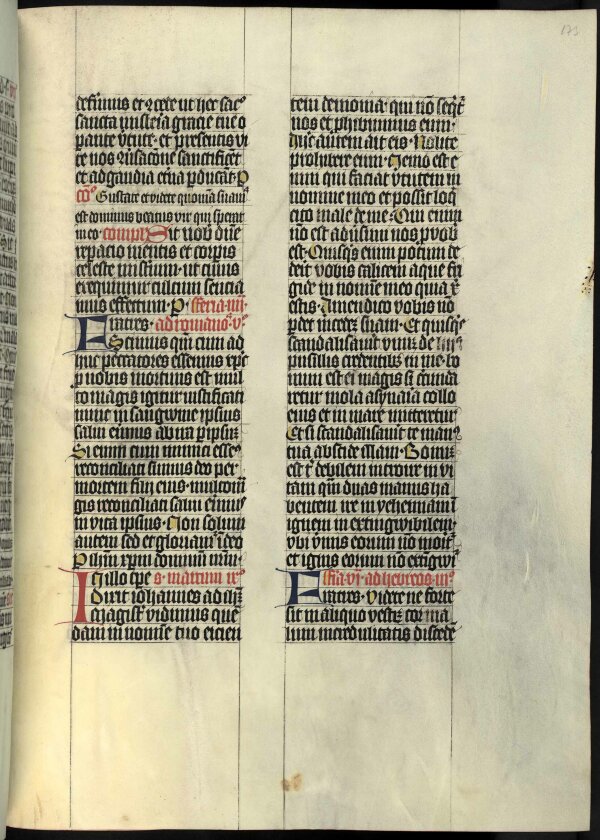 173
sancta misteria gracie tue o
parite v̄tute · et presentis vi
te nos
et ad gaudia et̄na p̄ducāt · P
Gustate et videte quoniā suauis
est dominus beatus vir qui sperat
in eo · compl̄ Sit nob̄ dn̄e
repacio mentis et corpis
celeste misterium · ut cuius
exequimur cultum sencia
mus effectum · P · feria iiij
Fratres · ad romanos v
Scimus qm̄ cum ad
huc peccatores essemus xpc
p nobis mortuus est mul
to magis igitur iustificati
nunc in sangwine ipsius
salui erimus ab ira p ipsum
Si enim cum inimici essem
reconciliati sumus deo per
mortem filii eius · multo m
gis reconciliati salui erim
in vita ipsius · Non solum
autem sed et gloriamur ī deo
P dn̄m xpm̄ dominum nrm̄ ·
In illo tpe s · marcum ix
Dixit iohannes ad
magist̄ vidimus que
dam in nomine tuo eicien
tem demonia · qui nō seqit̄
nos et phibuimus eum ·
Ihus autem ait eis · Nolite
prohibere eum · Nemo est e
nim qui faciat v̄tutem in
nomine meo et possit loq
cito male de me · Qui enim
nō est aduersum nos p vob
est · Quisqs enim potum de
derit vobis calicem aque fri
gide in nomine meo quia x
estis · Amen dico vobis nō
p̄det mercedē suam · Et quisqs
scandalisauit vnum de hiis
pusillis credentibus in me · bo
num est ei magis si circūda
retur mola asynaria collo
eius et in mare mitteretur
Et si scandalisauit te man
tua abscide illam · Bonum
est t̄ debilem introire in vi
tam qm̄ duas manus ha
bentem ire in yehennam ī
ignem in extingwibilem ·
vbi v̄mis eorum nō morit̄
et ignis eorum nō extīgwi
fīa · vi · ad hebreos · iii
Fratres · videte ne forte
sit in aliquo vestrum cor ma
lum incredulitatis discedē